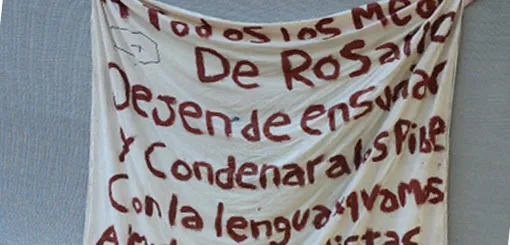 A Todos los Med
De ROSARIO
Dejen de ensuciar
y Condenar a los Pibe
Con la lengua xq vamos